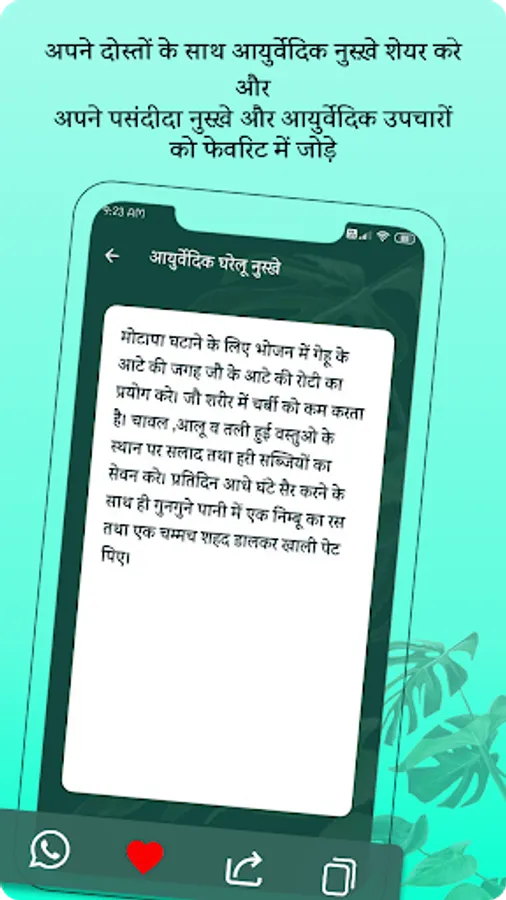 अपने दोस्तों के साथ आयुर्वेदिक नुस्ख़े शेयर करे
और
अपने पसंदीदा नुस्ख़े और आयुर्वेदिक उपचारों
को फेवरिट में जोड़े
9:23 AM
आयुर्वेदिक घरेलू नुस्खे
मोटापा घटाने के लिए भोजन में गेहू के
आटे की जगह जौ के आटे की रोटी का
प्रयोग करे। जौ शरीर में चर्बी को कम करता
है। चावल ,आलू व तली हुई वस्तुओ के
स्थान पर सलाद तथा हरी सब्जियों का
सेवन करे। प्रतिदिन आधे घंटे सैर करने के
साथ ही गुनगुने पानी में एक निम्बू का रस
तथा एक चम्मच शहद डालकर खाली पेट
पिए।